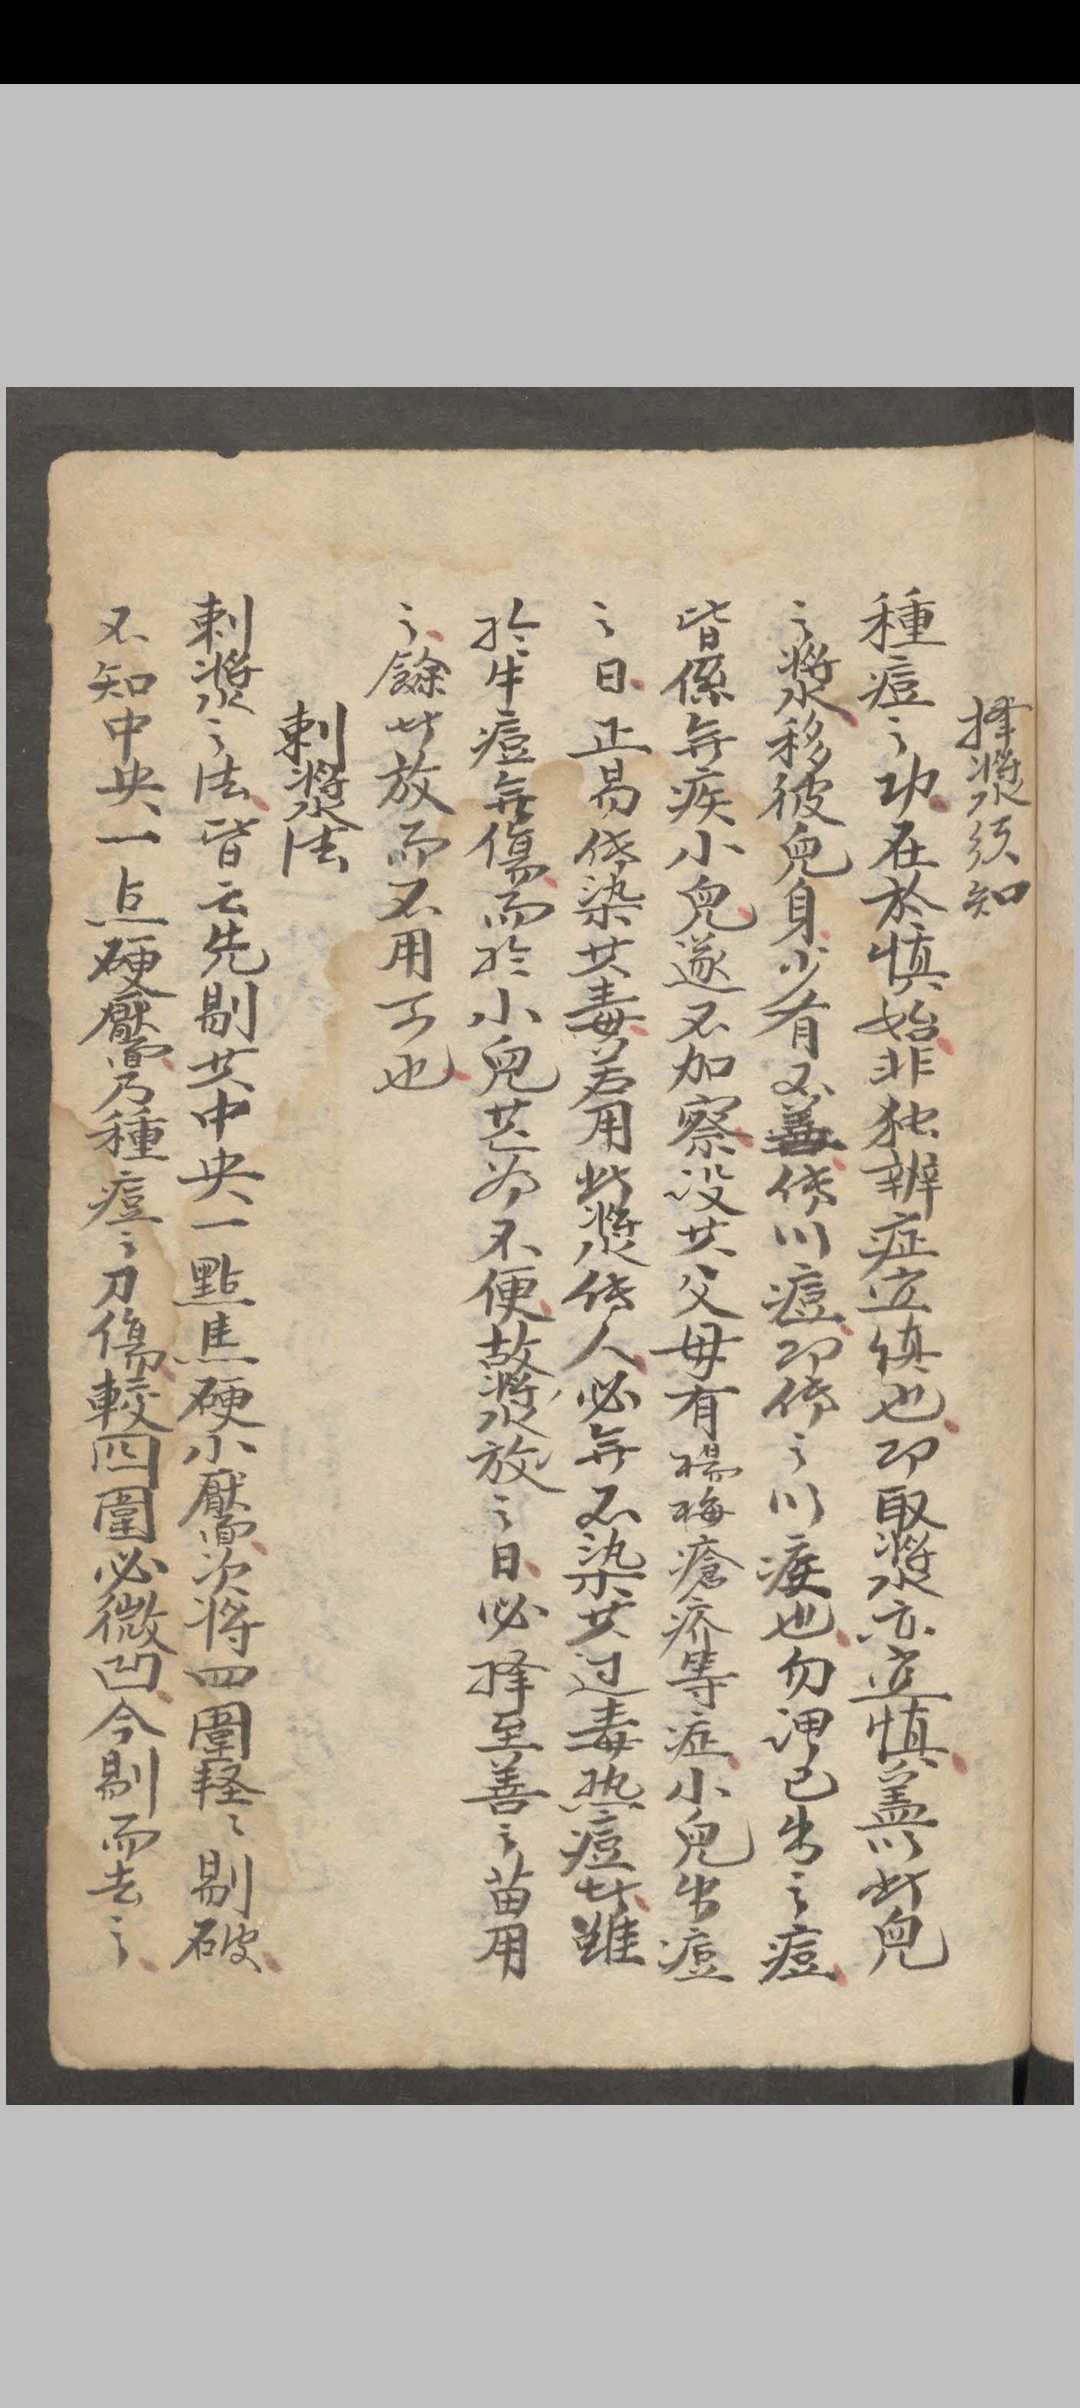 擇漿須知
種痘之功在於慎始非独辨症立慎也即取漿亦立慎盖以此兒
之漿移彼兒身少有不善傳以痘即傳之以疾也勿謂已出之痘
皆係無疾小兒遂不加察没其父母有楊梅瘡疥等症小兒出痘
之日正易傳染其毒若用此漿傳人必無不染其过毒热痘此雖
於牛痘無傷而於小兒甚为不便故漿放之日必择至善之苗用
之餘此放而不用可也
刺漿法
刺漿之法皆云先剔其中央一點焦硬小靨次将四圍轻〻剔破
不知中央一点硬靨乃種痘之刀傷較四圍必微凹今剔而去之